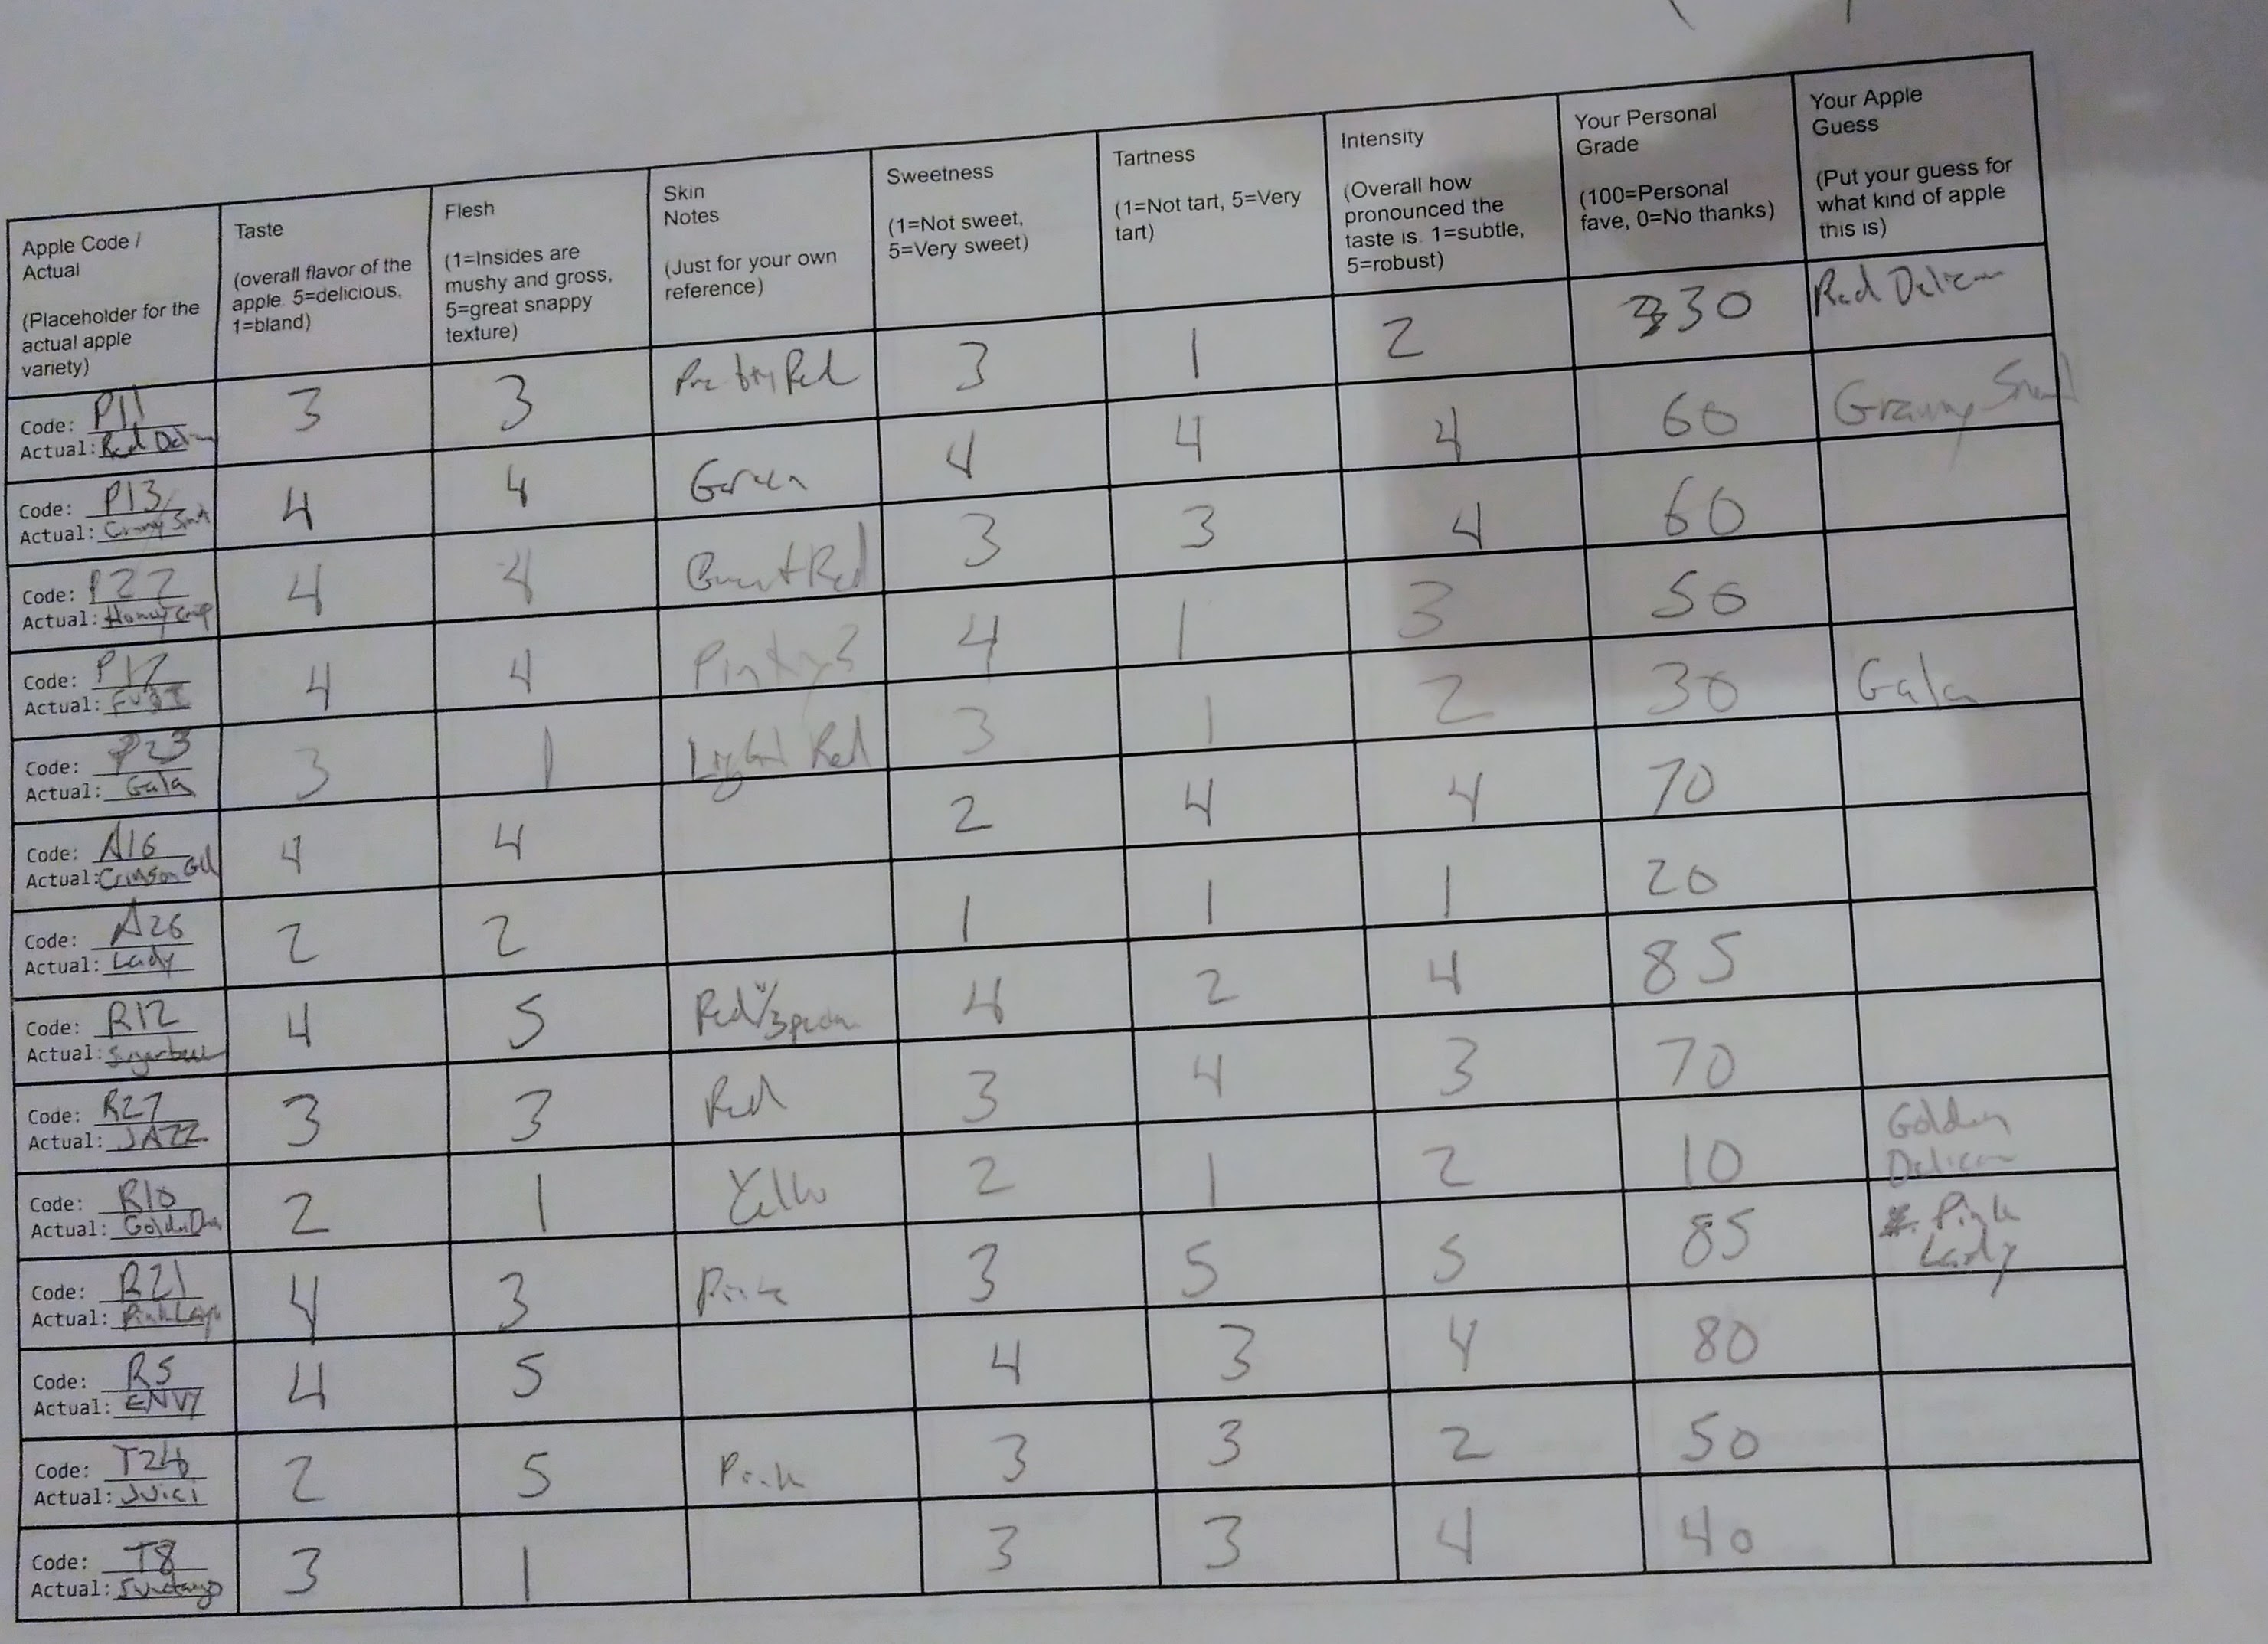 Apple Code /
Actual
(Placeholder for the
actual apple
variety)
Taste
(overall flavor of the
apple. 5=delicious,
1=bland)
Flesh
(1=Insides are
mushy and gross,
5=great snappy
texture)
Skin
Notes
(Just for your own
reference)
Sweetness
(1=Not sweet,
5=Very sweet)
Tartness
(1=Not tart, 5=Very
tart)
Intensity
(Overall how
pronounced the
taste is. 1=subtle,
5=robust)
Your Personal
Grade
(100=Personal
fave, 0=No thanks)
Your Apple
Guess
(Put your guess for
what kind of apple
this is)
Code: P11
Actual: Red
3 3 Red 3 1 2 30 Red
Code: P13
Actual: Granny
4 4 Green 4 4 4 60 Granny
Code: P22
Actual: Honeycrisp
4 4 Red 3 3 4 60
Code: P17
Actual: FUJI
4 4 4 1 3 50
Code: P23
Actual: Gala
3 1 Light Red 3 1 2 30 Gala
Code: A16
Actual: Crimson
4 4 2 4 4 70
Code: A26
Actual: Lady
2 2 1 1 1 20
Code: R12
Actual: Sugarbee
4 5 Red 4 2 4 85
Code: R27
Actual: JAZZ
3 3 Red 3 4 3 70
Code: R10
Actual: Golden
2 1 2 1 2 10 Golden
Code: R21
Actual: Pink Lady
4 3 Pink 3 5 5 85 Pink
Lady
Code: R5
Actual: ENVY
4 5 4 3 4 80
Code: T24
Actual: Juici
2 5 Pink 3 3 2 50
Code: T8
Actual:
3 1 3 3 4 40